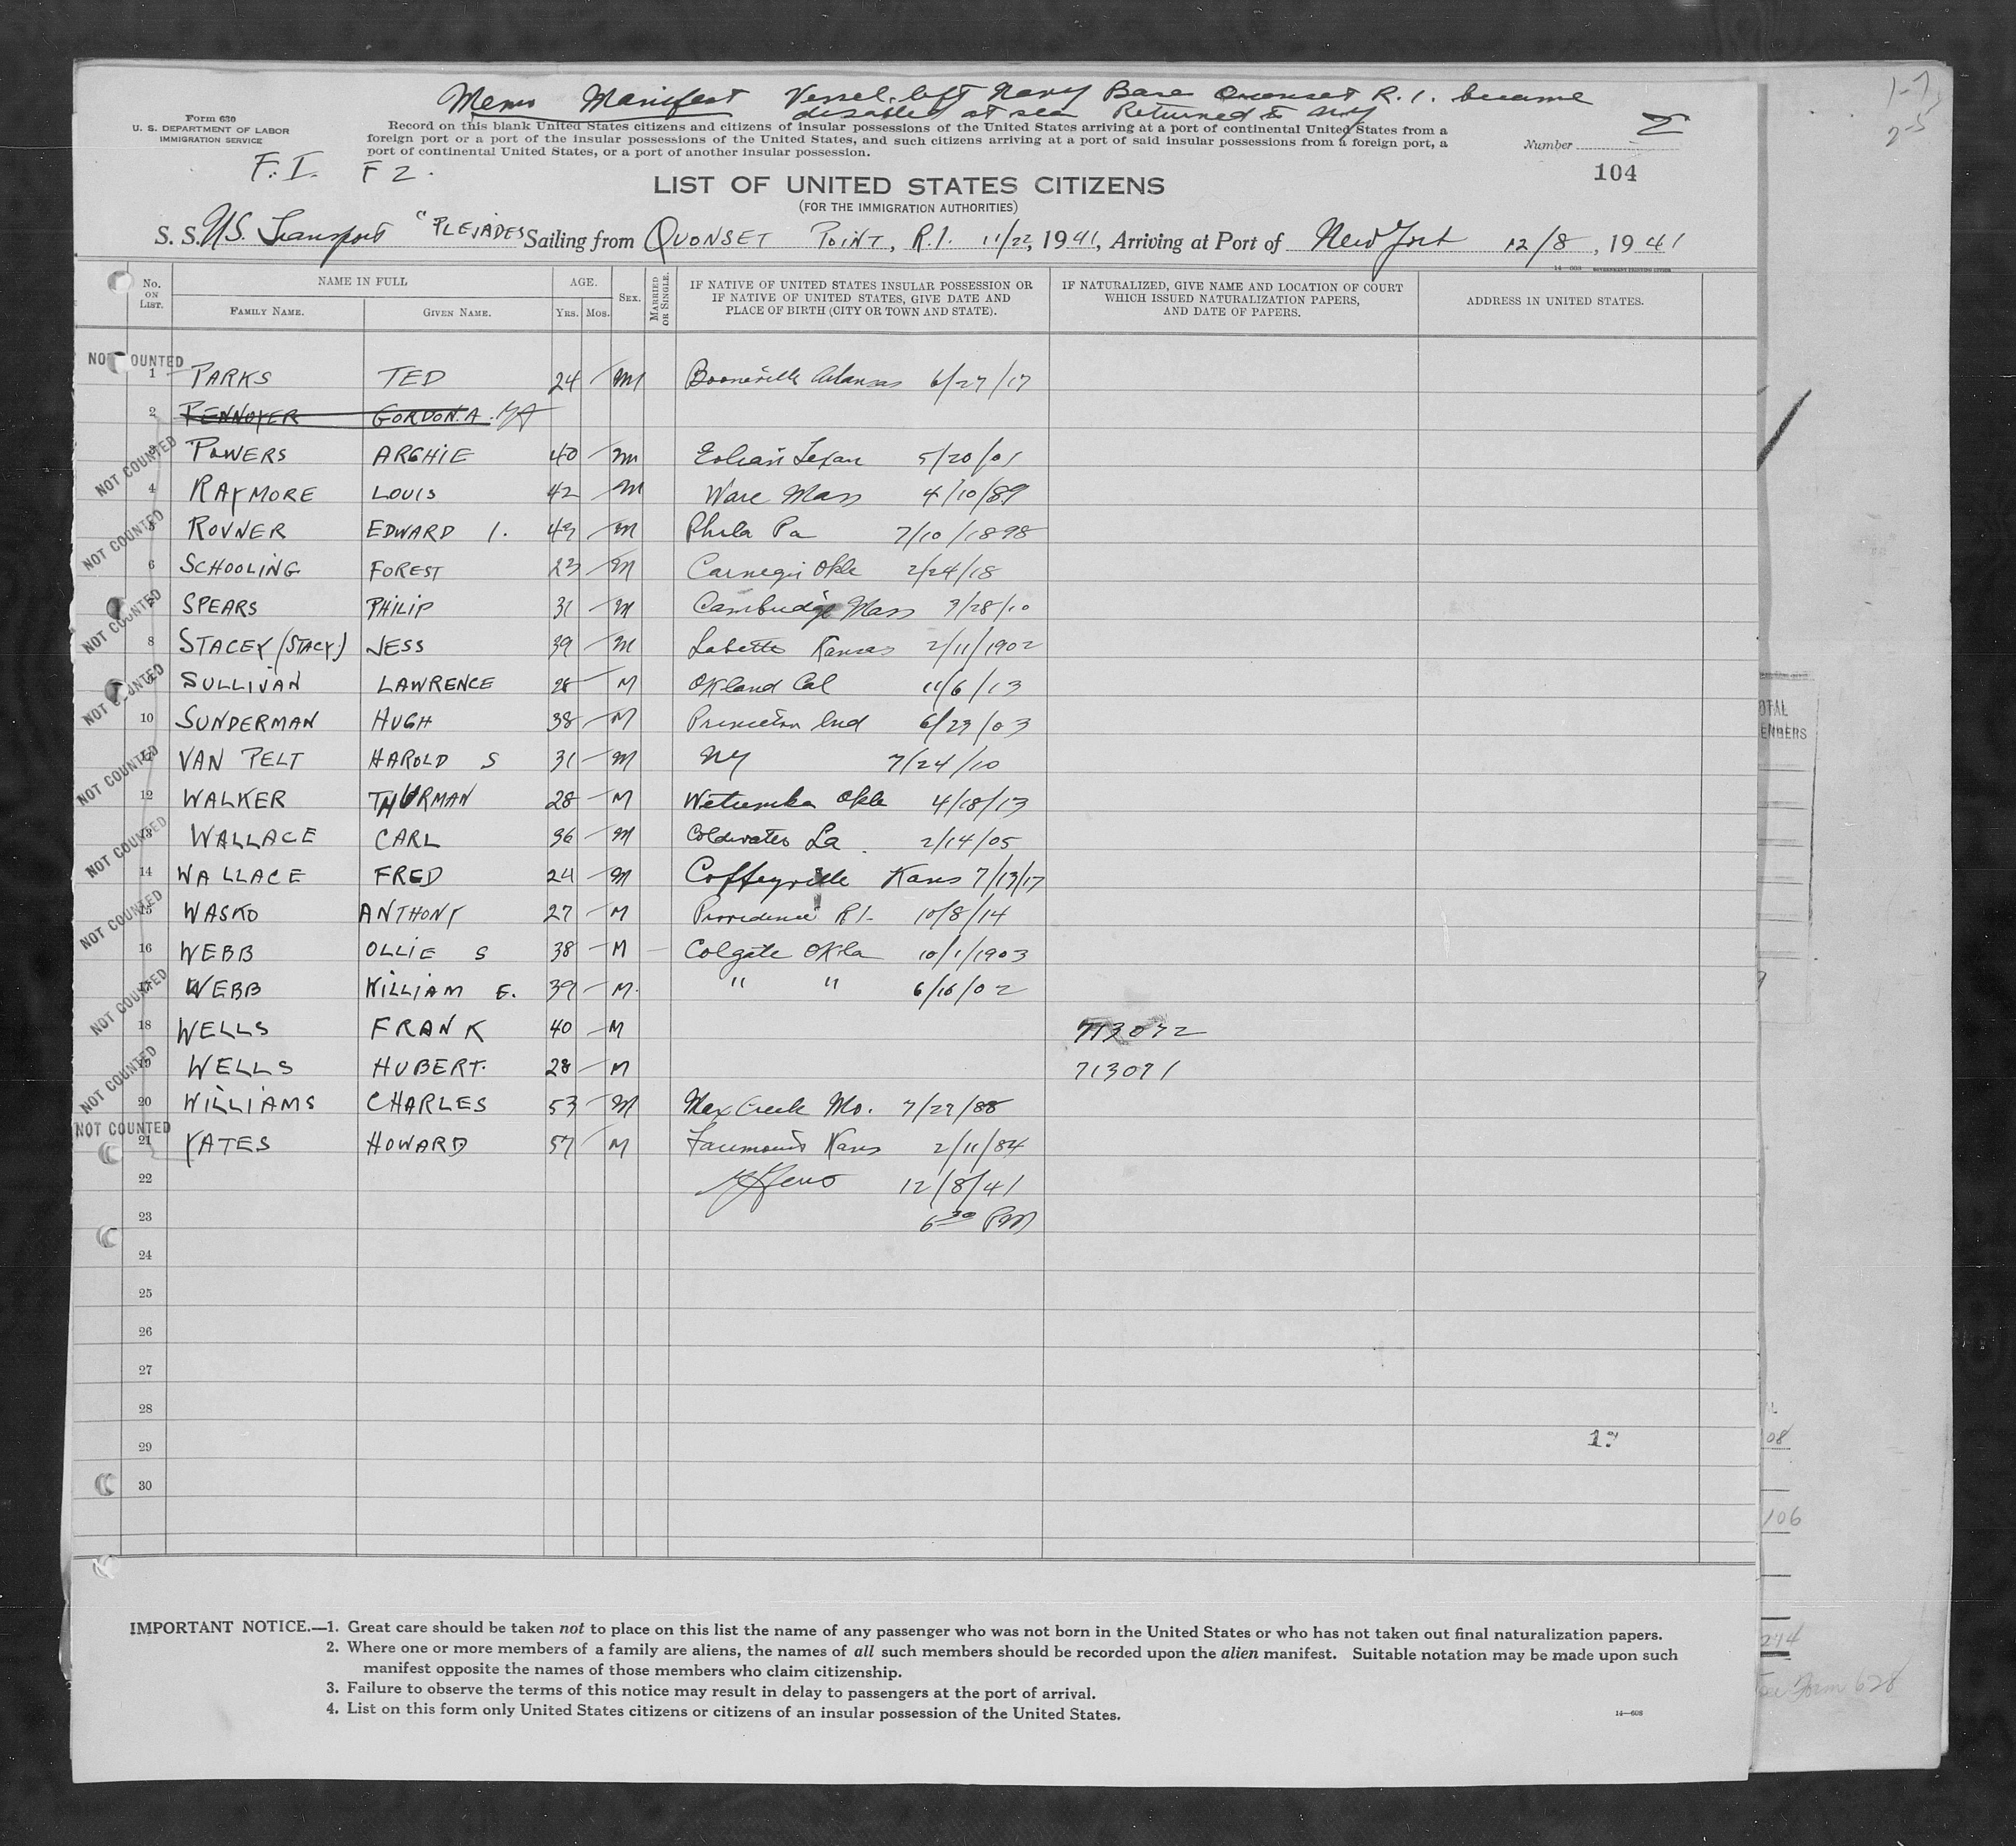 Memo Manifest Vessel left Navy Base Quonset R.I. became
disabled at sea Returned to NY
Form 630
U. S. DEPARTMENT OF LABOR
IMMIGRATION SERVICE
Record on this blank United States citizens and citizens of insular possessions of the United States arriving at a port of continental United States from a
foreign port or a port of the insular possessions of the United States, and such citizens arriving at a port of said insular possessions from a foreign port, a
port of continental United States, or a port of another insular possession.
Number
104
F. I. F 2.
LIST OF UNITED STATES CITIZENS
(FOR THE IMMIGRATION AUTHORITIES)
S. S. U.S. Transport "PLEJADES Sailing from QUONSET POINT, R.I. 11/22, 1941, Arriving at Port of New York 12/8, 1941
No. ON LIST. NAME IN FULL AGE. SEX. MARRIED OR SINGLE. IF NATIVE OF UNITED STATES INSULAR POSSESSION OR IF NATIVE OF UNITED STATES, GIVE DATE AND PLACE OF BIRTH (CITY OR TOWN AND STATE). IF NATURALIZED, GIVE NAME AND LOCATION OF COURT WHICH ISSUED NATURALIZATION PAPERS, AND DATE OF PAPERS. ADDRESS IN UNITED STATES.
FAMILY NAME. GIVEN NAME. YRS. MOS.
NOT COUNTED
1 PARKS TED 24 M Booneville Arkansas 6/27/17
2 PENNOYER GORDON. A.
3 POWERS ARCHIE 40 M Texas 5/20/01
NOT COUNTED
4 RAYMORE LOUIS 42 M Ware Mass 4/10/89
5 ROVNER EDWARD I. 43 M Phila Pa 7/10/1898
NOT COUNTED
6 SCHOOLING FOREST 23 M Carnegie Okla 2/24/18
7 SPEARS PHILIP 31 M Cambridge Mass 9/28/10
NOT COUNTED
8 STACEY (STACY) JESS 39 M Labette Kansas 2/11/1902
9 SULLIVAN LAWRENCE 28 M Okland Cal 11/6/13
NOT COUNTED
10 SUNDERMAN HUGH 38 M Princeton Ind 6/23/03
11 VAN PELT HAROLD S 31 M NY 7/24/10
NOT COUNTED
12 WALKER THURMAN 28 M Wetumka Okla 4/18/13
13 WALLACE CARL 36 M Coldwater La 2/14/05
NOT COUNTED
14 WALLACE FRED 24 M Coffeyville Kans 7/13/17
15 WASKO ANTHONY 27 M Providence R I. 10/8/14
NOT COUNTED
16 WEBB OLLIE S 38 M Colgate Okla 10/1/1903
17 WEBB WILLIAM E. 39 M. " " 6/16/02
NOT COUNTED
18 WELLS FRANK 40 M 713072
19 WELLS HUBERT. 28 M 713071
NOT COUNTED
20 WILLIAMS CHARLES 53 M Max Creek Mo. 7/27/88
NOT COUNTED
21 YATES HOWARD 57 M Kans 2/11/84
22 12/8/41
23 6 30 PM
24
25
26
27
28
29
30
IMPORTANT NOTICE.—1. Great care should be taken not to place on this list the name of any passenger who was not born in the United States or who has not taken out final naturalization papers.
2. Where one or more members of a family are aliens, the names of all such members should be recorded upon the alien manifest. Suitable notation may be made upon such
manifest opposite the names of those members who claim citizenship.
3. Failure to observe the terms of this notice may result in delay to passengers at the port of arrival.
4. List on this form only United States citizens or citizens of an insular possession of the United States.
14—608
106
Form 628